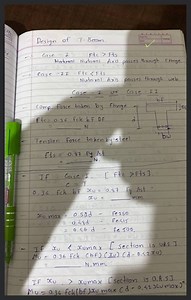 Design of T-Beam
Case I Ffc > Ffs
Natural Axis passes through flange
Case II Ffc < Ffs
Natural Axis passes through web
Case I or Case II
Comp. force taken by flange
Ffc = 0.36 fck bf Df
N
Tension force taken by steel
Ffs = 0.87 fy Ast
N
IF Case I [Ffc > Ffs]
0.36 fck bf xu = 0.87 fy Ast
xu =
mm
xumax = 0.53d - Fe250
0.48d - Fe415
0.46d - Fe500
IF xu < xumax [section is U.R.S]
Mu = 0.36 fck (bf) (xu) (d - 0.42 xu)
N.mm
IF xu > xumax [section is O.R.S]
Mu = 0.36 fck (bf) xumax (d - 0.42 xumax)